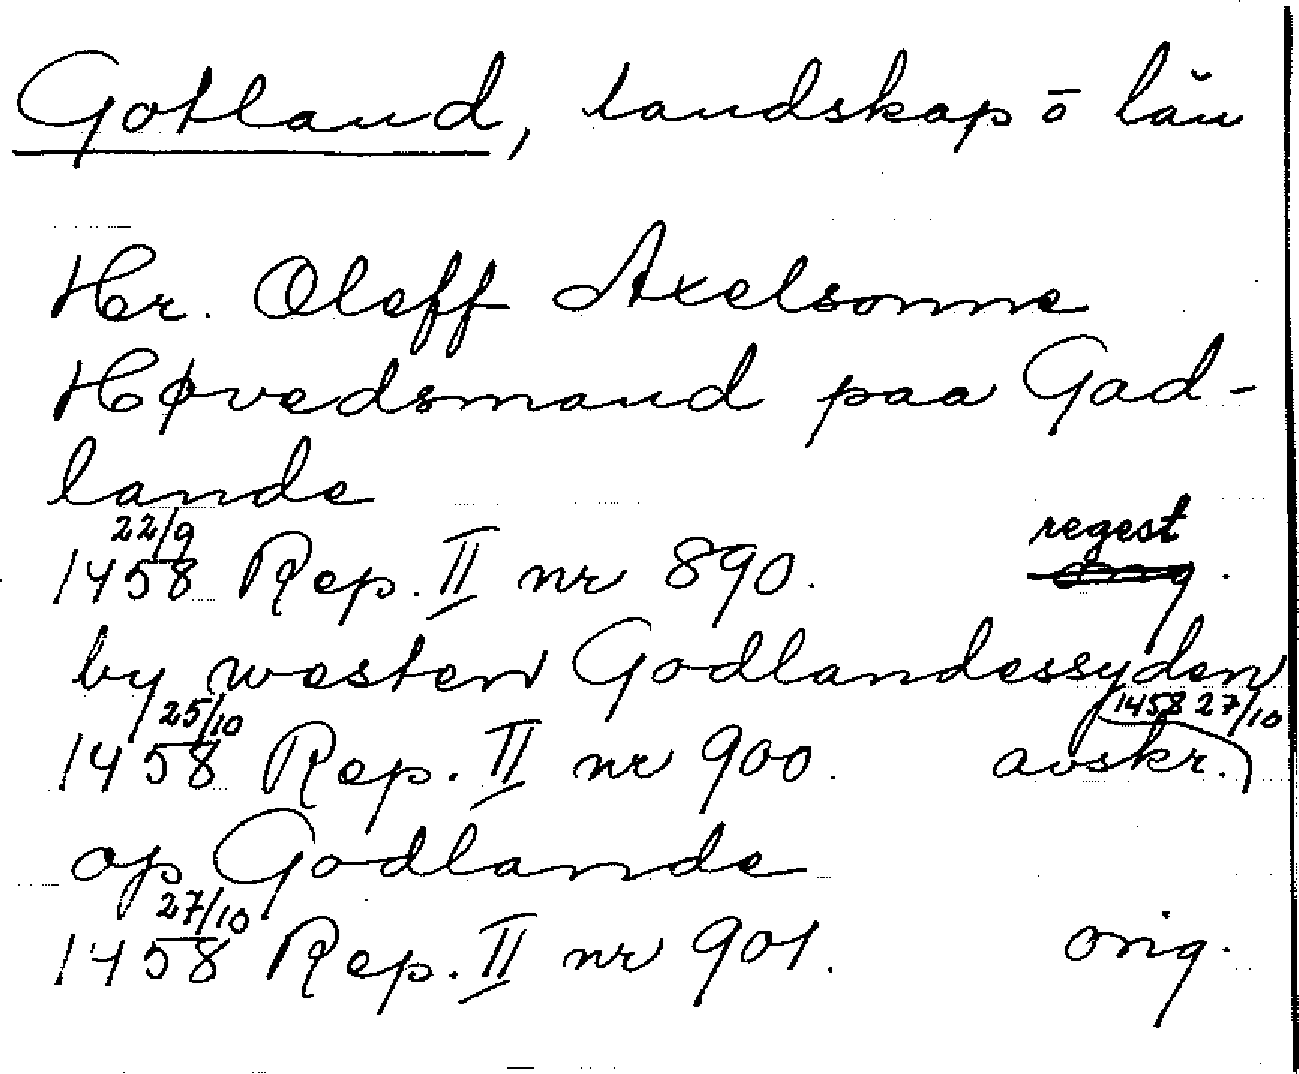 Gotland, landskap o län
Hr. Oleff Axelsonne
Høvedsmand paa Gad-
lande
22/9 regest
1458 Rep. II nr 890. orig.
by westen Godlandessyden
25/10 1458 27/10
1458 Rep. II nr 900. avskr.)
op Godlande
27/10
1458 Rep. II nr 901. orig.